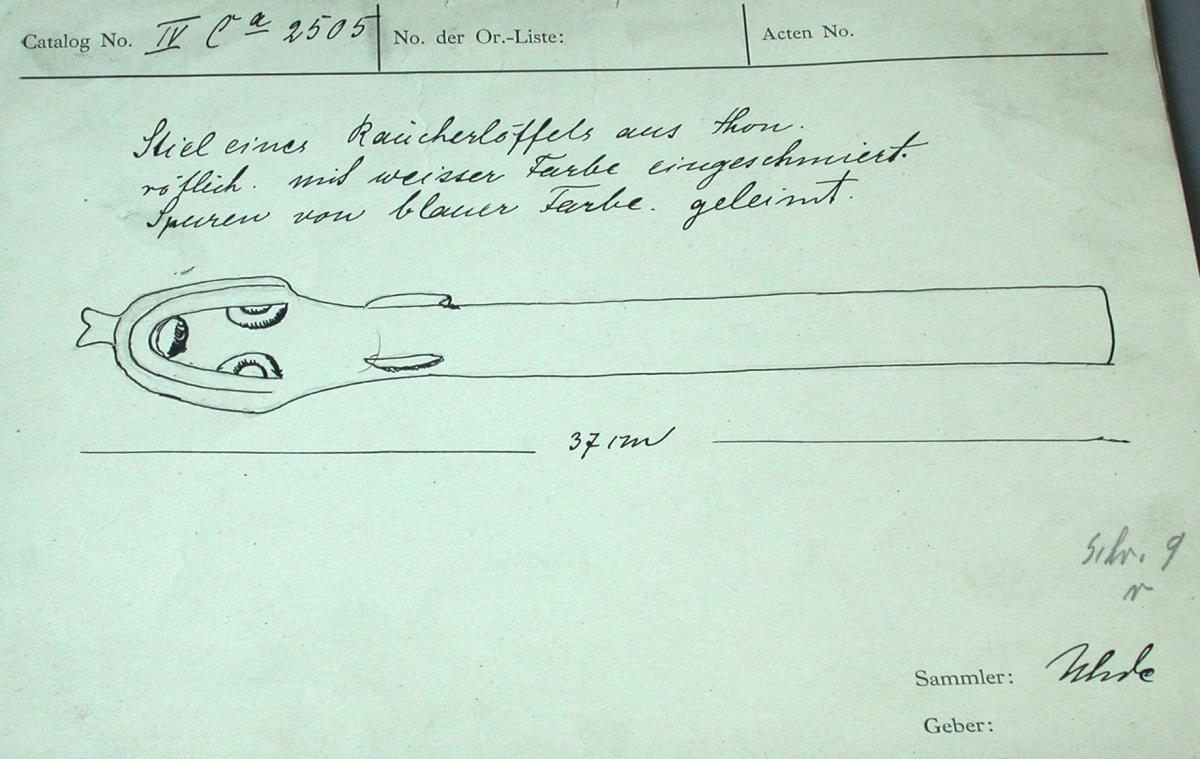 Catalog No. IV Ca 2505 No. der Or.-Liste: Acten No.
Stiel eines Raücherlöffels aus Thon.
rötlich. mit weisser Farbe eingeschmiert.
Spuren von blauer Farbe. geleimt.
37 cm
Schr. 9
r
Sammler: Uhde
Geber: